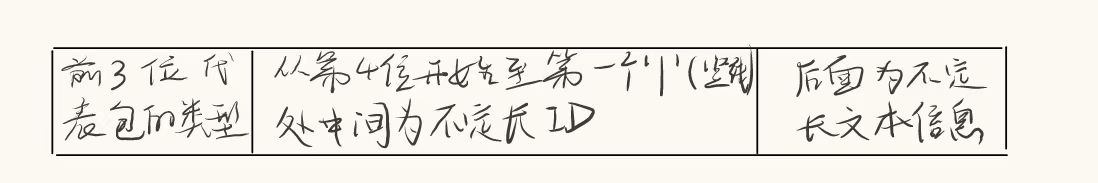 前3位代
表包的类型
从第4位开始至第一个'|'(竖线)
处中间为不定长ID
后面为不定
长文本信息